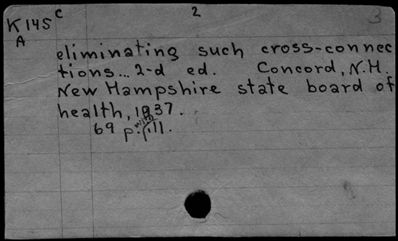 K145 C 2 3
A
eliminating such cross-connec
tions... 2-d ed. Concord, N.H.
New Hampshire state board of
health, 1937.
69 p. ill.